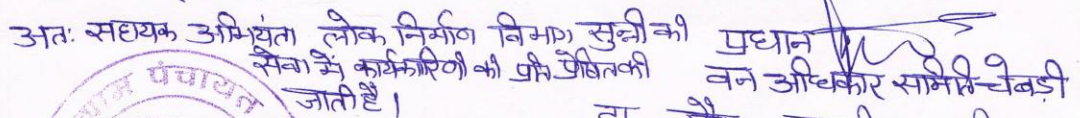 अतः सहायक अभियंता लोक निर्माण विभाग सुन्नी को
सेवा में कार्यकारिणी की प्रति प्रेषित की
जाती है।
प्रधान
वन अधिकार समिति चेबड़ी
ग्राम पंचायत